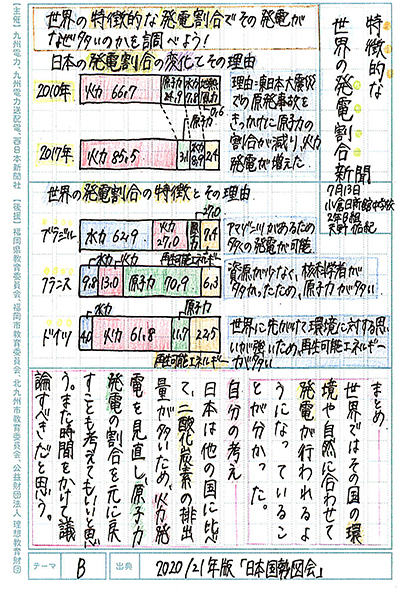 特徴的な
世界の発電割合新聞
7月13日
2年B組
世界の特徴的な発電割合でその発電が
なぜ多いのかを調べよう!
日本の発電割合の変化とその理由
2010年
火力 66.7
原子力 24.9
水力 7.8
2017年
火力 85.5
3.1
8.9
2.4
原子力
理由=東日本大震災
での原発事故を
きっかけに原子力の
割合が減り、火力
発電が増えた。
世界の発電割合の特徴とその理由
ブラジル
水力 62.9
火力 27.0
7.4
アマゾン川があるため
多くの発電が可能
フランス
水力
火力
再生可能エネルギー
9.8
13.0
原子力 70.9
6.3
資源が少なく、核科学者が
多かったため、原子力が多い
ドイツ
水力
原子力
4.0
火力 61.8
11.7
22.5
再生可能エネルギー
世界に先がけて環境に対する思
いが強いため、再生可能エネルギー
が多い
まとめ
世界ではその国の環
境や自然に合わせて
発電が行われるよ
うになっているこ
とが分かった。
自分の考え
日本は他の国に比べ
て、二酸化炭素の排出
量が多いため、火力発
電を見直し、原子力
発電の割合を元に戻
すことも考えてもいいと思
う。また時間をかけて議
論すべきだと思う。
テーマ
B
出典
2020/21年版「日本国勢図会」
【主催】九州電力、九州電力送配電、西日本新聞社
【後援】福岡県教育委員会、福岡市教育委員会、北九州市教育委員会、公益財団法人 理想教育財団